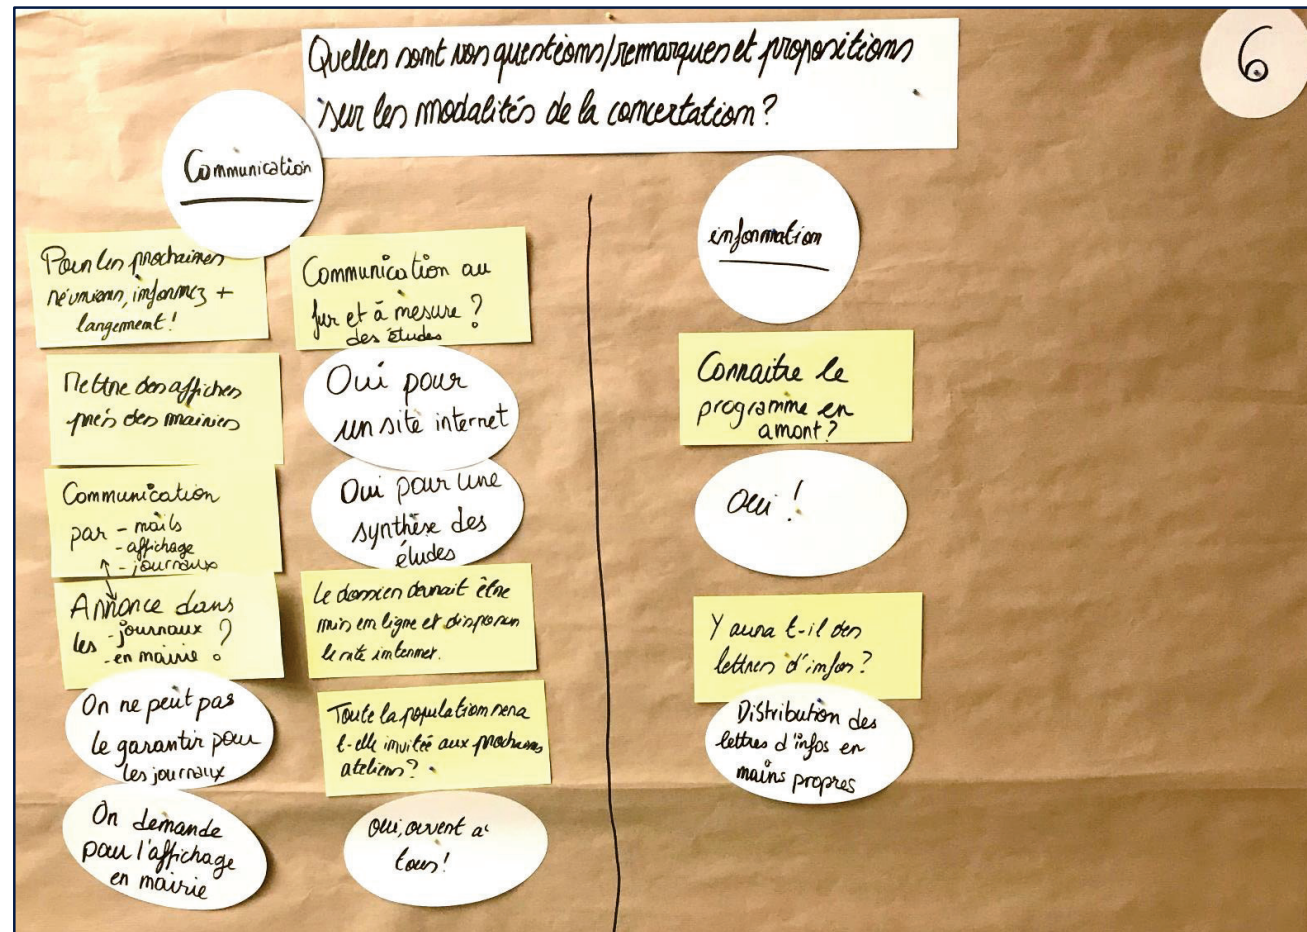 Quelles sont vos questions/remarques et propositions
sur les modalités de la concertation?
6
Communication
Pour les prochaines
réunions, informez +
largement!
Mettre des affiches
près des mairies
Communication
par - mails
- affichage
- journaux
Annonce dans
les - journaux ?
- en mairie
On ne peut pas
le garantir pour
les journaux
On demande
pour l'affichage
en mairie
Communication au
fur et à mesure ?
des études
Oui pour
un site internet
Oui pour une
synthèse des
études
Le dossier devrait être
mis en ligne et disp sur
le site internet.
Toute la population sera
t-elle invitée aux prochains
ateliers?
oui, ouvert à
tous!
information
Connaitre le
programme en
amont?
oui !
Y aura t-il des
lettres d'infos?
Distribution des
lettres d'infos en
mains propres